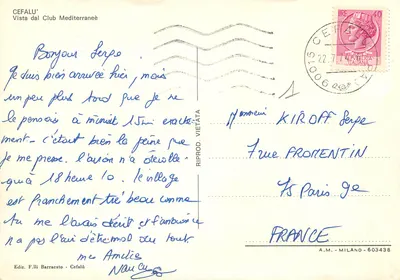 CEFALU'
Vista dal Club Mediterraneè
Bonjour Serge.
Je suis bien arrivée hier, mais
un peu plus tard que je ne
le pensais à minuit 15 mn exacte-
ment - c'était bien la peine que
je me presse. l'avion n'a décollé
qu'à 18 heure 10. le village
est franchement très beau comme
tu me l'avais décrit et l'ambiance
n'a pas l'air d'être mal du tout
mes Amitiés
Ediz. F.lli Barracato - Cefalù
RIPROD. VIETATA
Monsieur KIROFF Serge
7 rue FROMENTIN
75 Paris 9e
FRANCE
A.M. - MILANO - 603436